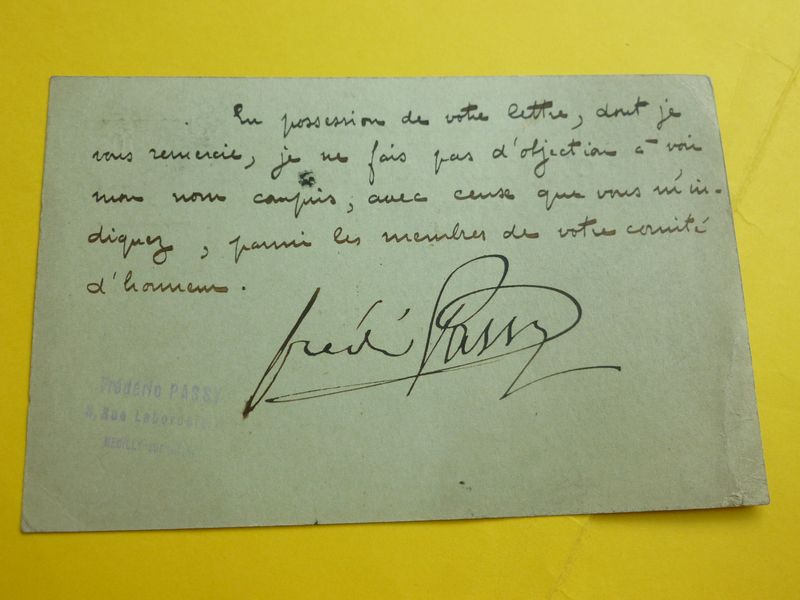 En possession de votre lettre, dont je
vous remercie, je ne fais pas d'objection à voir
mon nom compris, avec ceux que vous m'in-
diquez, parmi les membres de votre comité
d'honneur.
Frédéric Passy
Frédéric PASSY
8, Rue Labordère
NEUILLY-SUR-SEINE